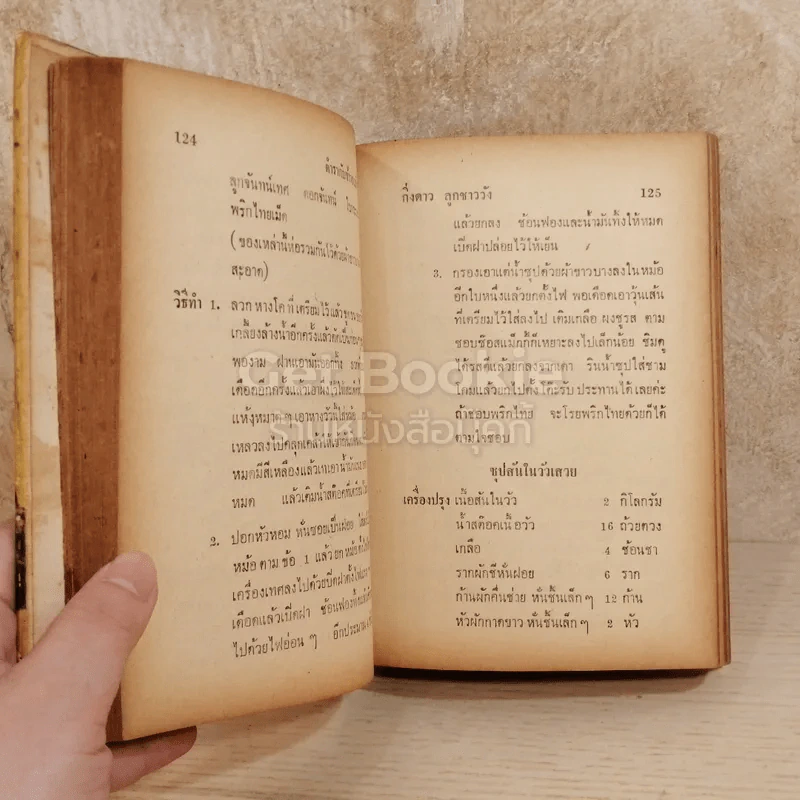 124
ลูกจันทน์เทศ ดอกจันทน์
พริกไทยเม็ด
(ของเหล่านี้ห่อรวมกันไว้ด้วยผ้าขาว
สะอาด)
วิธีทำ 1. ลวก หางโค ที่เตรียมไว้แล้วขูด
เกลี้ยงล้างน้ำอีกครั้งแล้วตัดเป็น
พองาม ผ่านเอามันออกทิ้ง
เดือดอีกครั้งแล้วเอาผึ่งไว้ให้
แห้งหมาด ๆ เอาหางวัวนี้ใส่
เหลวลงไปคลุกเคล้าให้เข้ากัน
หมดมีสีเหลืองแล้วเทเอาน้ำมัน
หมด แล้วเติมน้ำสต๊อคที่เตรียม
2. ปอกหัวหอม หั่นซอยเป็นฝอย
หม้อ ตาม ข้อ 1 แล้ว ยก หม้อ
เครื่องเทศลงไปด้วยปิดฝาตั้งไฟ
เดือดแล้วเปิดฝา ช้อนฟอง
ไปด้วยไฟอ่อน ๆ อีกประมาณ
กิ่งดาว ลูกชาววัง 125
แล้วยกลง ช้อนฟองและน้ำมันทิ้งให้หมด
เปิดฝาปล่อยไว้ให้เย็น
3. กรองเอาแต่น้ำซุปด้วยผ้าขาวบางลงในหม้อ
อีกใบหนึ่งแล้วยกตั้งไฟ พอเดือดเอาวุ้นเส้น
ที่เตรียมไว้ใส่ลงไป เติมเกลือ ผงชูรส ตาม
ชอบซ๊อสแม็กกี้ก็เหยาะลงไปเล็กน้อย ชิมดู
ได้รสดีแล้วยกลงจากเตา รินน้ำซุปใส่ชาม
โคมแล้วยกไปตั้งโต๊ะรับ ประทานได้ เลยค่ะ
ถ้าชอบพริกไทย จะโรยพริกไทยด้วยก็ได้
ตามใจชอบ
ซุปสันในวัวเสวย
เครื่องปรุง เนื้อสันในวัว 2 กิโลกรัม
น้ำสต๊อคเนื้อวัว 16 ถ้วยตวง
เกลือ 4 ช้อนชา
รากผักชีหั่นฝอย 6 ราก
ก้านผักคื่นช่าย หั่นชิ้นเล็ก ๆ 12 ก้าน
หัวผักกาดขาว หั่นชิ้นเล็ก ๆ 2 หัว
Get Bookie
ร้านหนังสือบุ๊คกี้